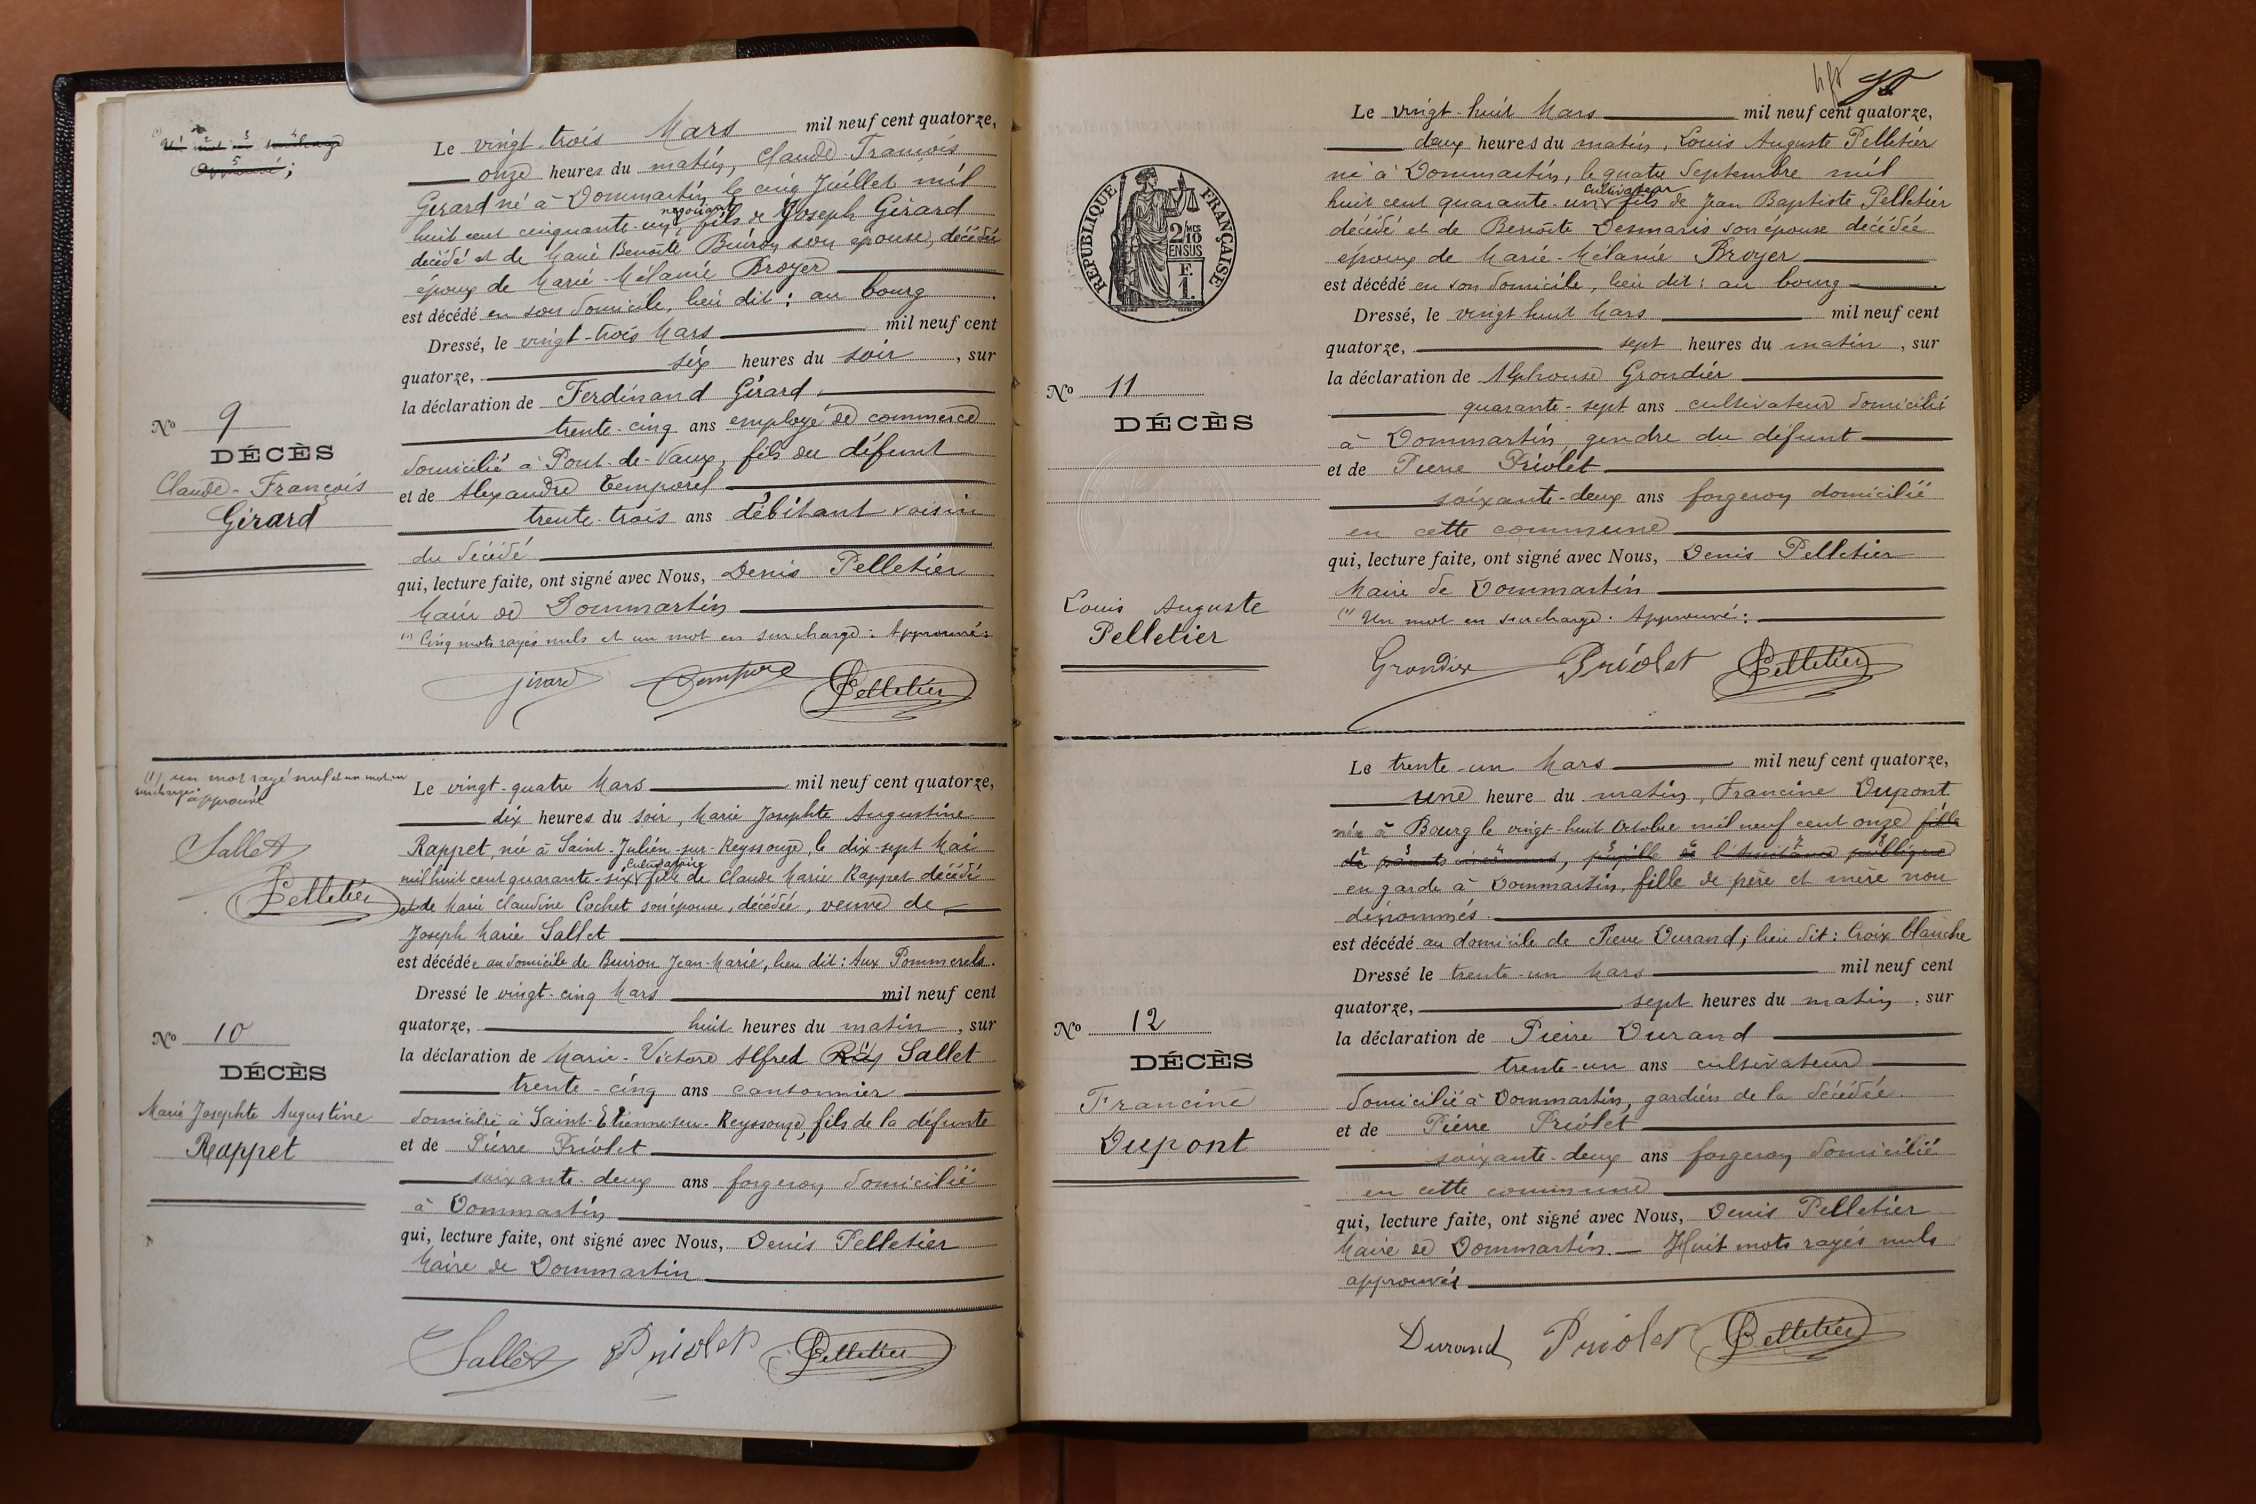 Le vingt-trois Mars mil neuf cent quatorze,
onze heures du matin, Claude-François
Gérard né à Dommartin le cinq Juillet mil
négociant
huit cent cinquante-un fils de Joseph Gérard
décédé et de Marie Benoîte Buiron son épouse, décédée
époux de Marie-Mélanie Broyer
est décédé en son domicile, lieu dit : au bourg.
Dressé, le vingt-trois Mars mil neuf cent
quatorze, six heures du soir, sur
la déclaration de Ferdinand Gérard
trente-cinq ans employé de commerce
domicilié à Pont-de-Vaux, fils du défunt
et de Alexandre Temporel
trente-trois ans débitant voisin
du décédé
qui, lecture faite, ont signé avec Nous, Denis Pelletier
Maire de Dommartin
(1) Cinq mots rayés nuls et un mot en surcharge : Approuvé :
Pelletier
No 9
DÉCÈS
Claude-François
Gérard
(1) un mot rayé nul et un mot en
surcharge approuvé
Sallet
Pelletier
Le vingt-quatre Mars mil neuf cent quatorze,
dix heures du soir, Marie Josephte Augustine
Rappet, née à Saint-Julien-sur-Reyssouze, le dix-sept Mai
cultivatrice
mil huit cent quarante-six fille de Claude Marie Rappet décédé
et de Marie Claudine Cochet son épouse, décédée, veuve de
Joseph Marie Sallet
est décédée au domicile de Buiron Jean-Marie, lieu dit : Aux Pommerels.
Dressé le vingt-cinq Mars mil neuf cent
quatorze, huit heures du matin, sur
la déclaration de Marie-Victor Alfred Sallet
trente-cinq ans cantonnier
domicilié à Saint-Etienne-sur-Reyssouze, fils de la défunte
et de Pierre Priolet
soixante-deux ans forgeron domicilié
à Dommartin
qui, lecture faite, ont signé avec Nous, Denis Pelletier
Maire de Dommartin
Sallet Priolet Pelletier
No 10
DÉCÈS
Marie Josephte Augustine
Rappet
Le vingt-huit Mars mil neuf cent quatorze,
deux heures du matin, Louis Auguste Pelletier
né à Dommartin, le quatre Septembre mil
cultivateur
huit cent quarante-un fils de Jean Baptiste Pelletier
décédé et de Benoîte Desmaris son épouse décédée
époux de Marie-Mélanie Broyer
est décédé en son domicile, lieu dit : au bourg.
Dressé, le vingt huit Mars mil neuf cent
quatorze, sept heures du matin, sur
la déclaration de Alphonse Grondier
quarante-sept ans cultivateur domicilié
à Dommartin, gendre du défunt
et de Pierre Priolet
soixante-deux ans forgeron domicilié
en cette commune
qui, lecture faite, ont signé avec Nous, Denis Pelletier
Maire de Dommartin
(1) Un mot en surcharge. Approuvé :
Grondier Priolet Pelletier
RÉPUBLIQUE FRANÇAISE
2/10 MES
EN SUS
F.
1.
No 11
DÉCÈS
Louis Auguste
Pelletier
Le trente-un Mars mil neuf cent quatorze,
une heure du matin, Francine Dupont
née à Bourg le vingt-huit Octobre mil neuf cent onze fille
de parents inconnus, pupille de l'Assistance publique
en garde à Dommartin, fille de père et mère non
dénommés.
est décédé au domicile de Pierre Durand, lieu dit : Croix blanche
Dressé le trente-un Mars mil neuf cent
quatorze, sept heures du matin, sur
la déclaration de Pierre Durand
trente-un ans cultivateur
domicilié à Dommartin, gardien de la décédée.
et de Pierre Priolet
soixante-deux ans forgeron domicilié
en cette commune
qui, lecture faite, ont signé avec Nous, Denis Pelletier
Maire de Dommartin. Huit mots rayés nuls
approuvés
Durand Priolet Pelletier
No 12
DÉCÈS
Francine
Dupont